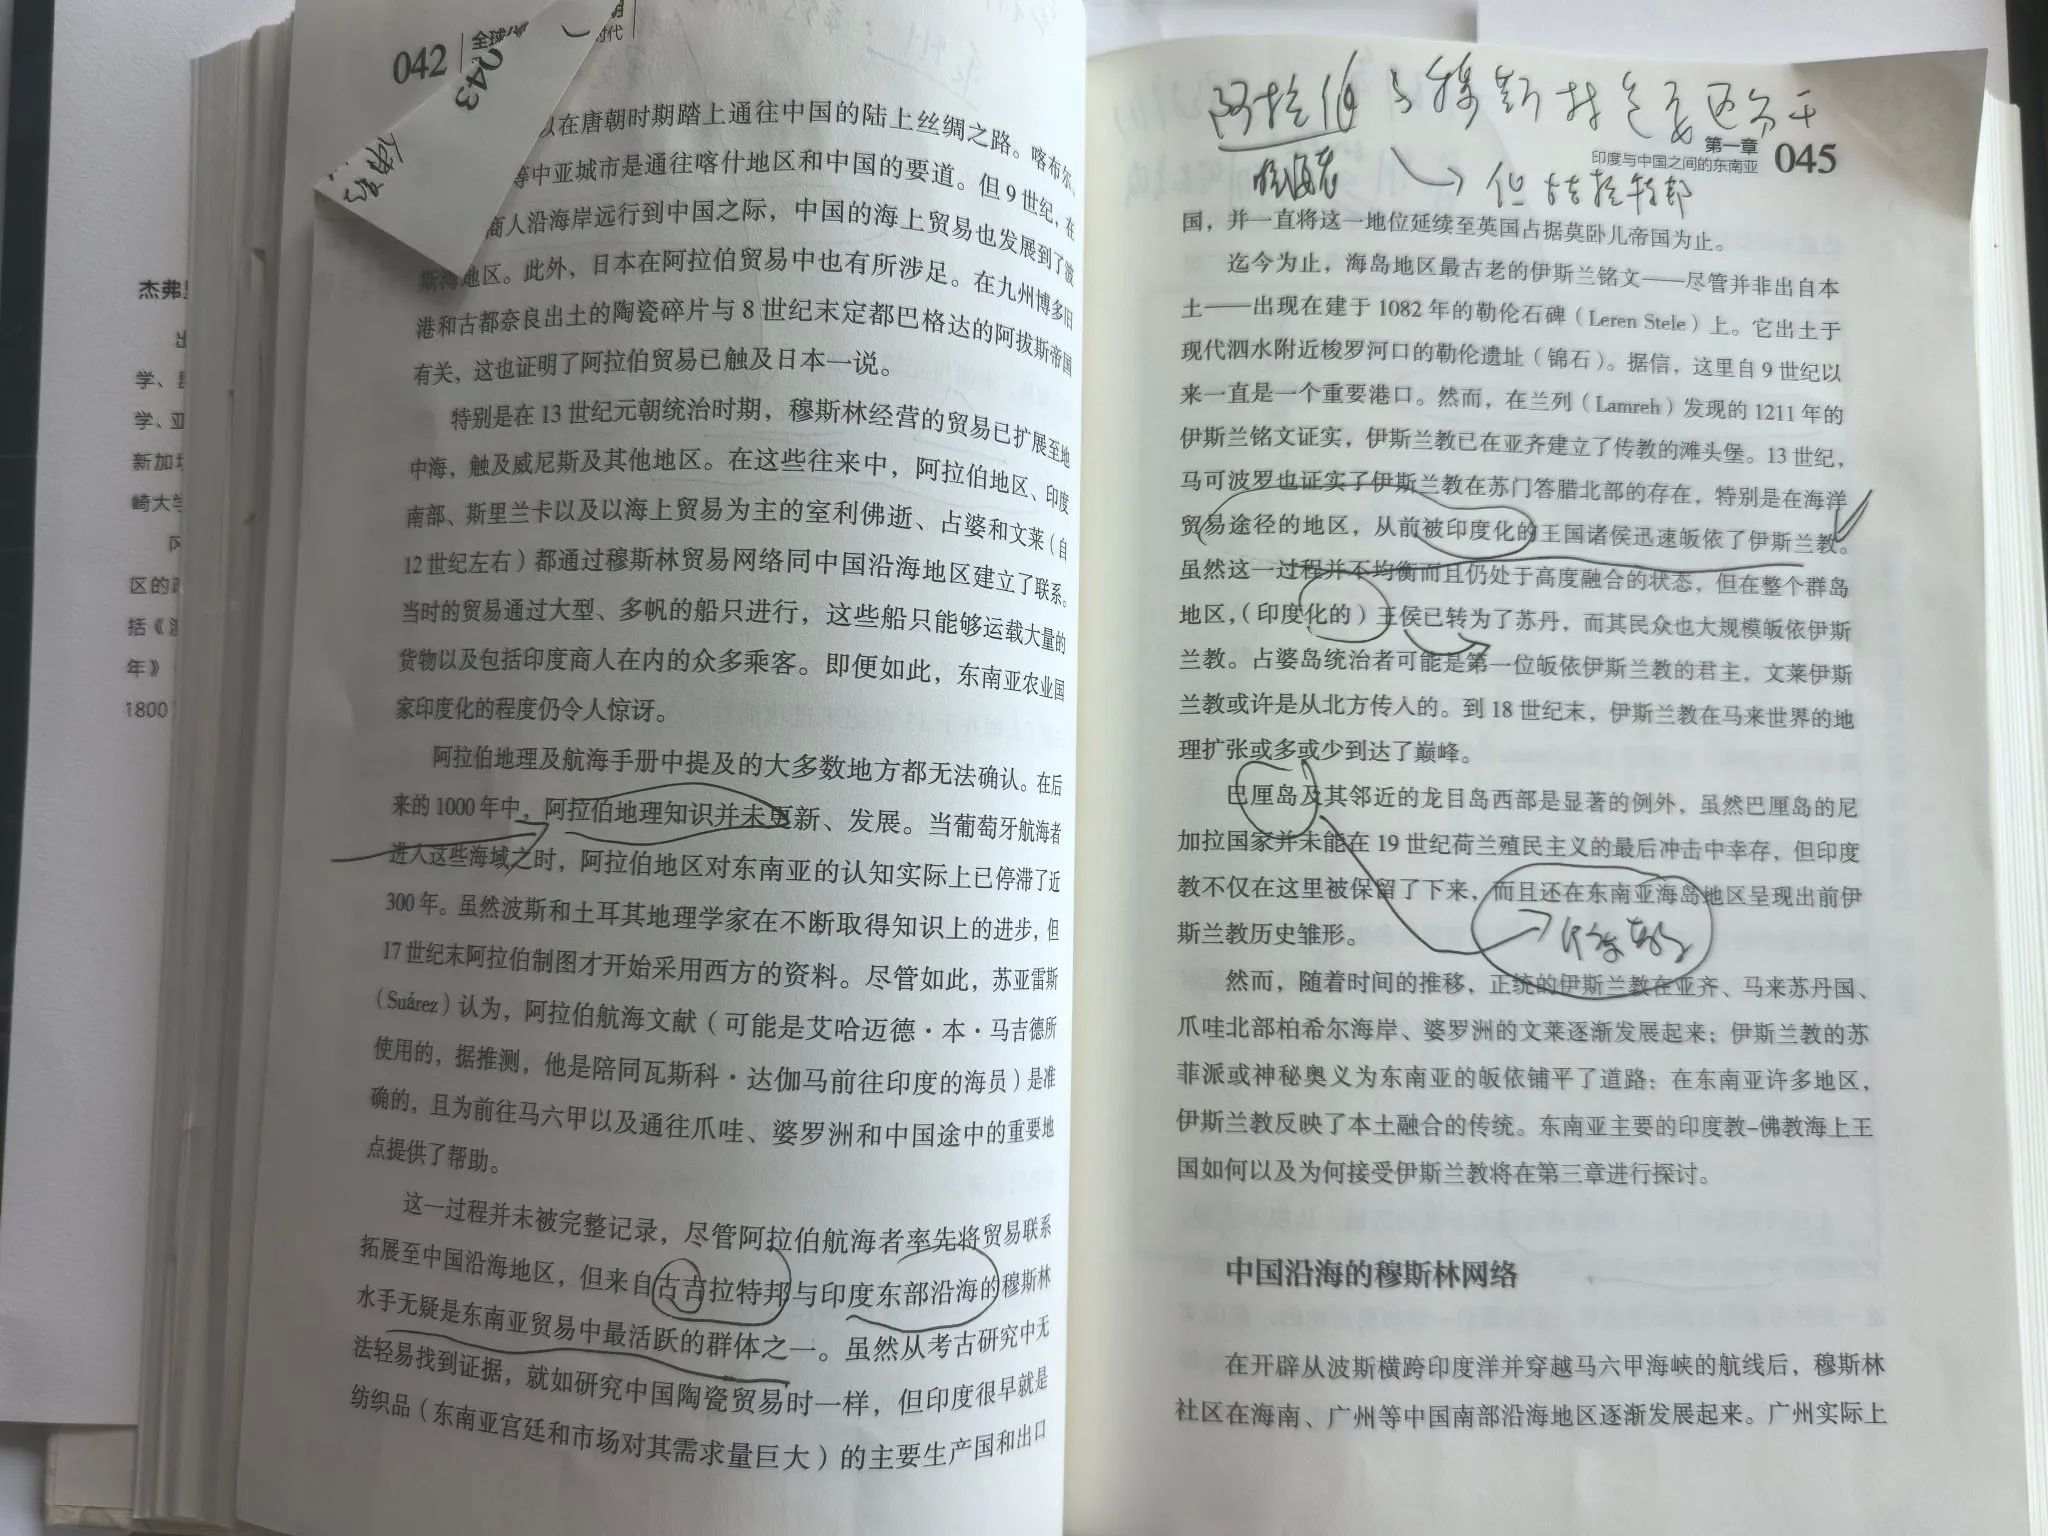 杰弗里
学、
学、亚
新加坡
崎大学
区的
括《
年》
1800
042
全球
时代
043
以在唐朝时期踏上通往中国的陆上丝绸之路。喀布尔、
等中亚城市是通往喀什地区和中国的要道。但9世纪，在
商人沿海岸远行到中国之际，中国的海上贸易也发展到了波
斯湾地区。此外，日本在阿拉伯贸易中也有所涉足。在九州博多旧
港和古都奈良出土的陶瓷碎片与8世纪末定都巴格达的阿拔斯帝国
有关，这也证明了阿拉伯贸易已触及日本一说。
特别是在13世纪元朝统治时期，穆斯林经营的贸易已扩展至地
中海，触及威尼斯及其他地区。在这些往来中，阿拉伯地区、印度
南部、斯里兰卡以及以海上贸易为主的室利佛逝、占婆和文莱（自
12世纪左右）都通过穆斯林贸易网络同中国沿海地区建立了联系。
当时的贸易通过大型、多帆的船只进行，这些船只能够运载大量的
货物以及包括印度商人在内的众多乘客。即便如此，东南亚农业国
家印度化的程度仍令人惊讶。
阿拉伯地理及航海手册中提及的大多数地方都无法确认。在后
来的1000年中，阿拉伯地理知识并未更新、发展。当葡萄牙航海者
进入这些海域之时，阿拉伯地区对东南亚的认知实际上已停滞了近
300年。虽然波斯和土耳其地理学家在不断取得知识上的进步，但
17世纪末阿拉伯制图才开始采用西方的资料。尽管如此，苏亚雷斯
（Suárez）认为，阿拉伯航海文献（可能是艾哈迈德·本·马吉德所
使用的，据推测，他是陪同瓦斯科·达伽马前往印度的海员）是准
确的，且为前往马六甲以及通往爪哇、婆罗洲和中国途中的重要地
点提供了帮助。
这一过程并未被完整记录，尽管阿拉伯航海者率先将贸易联系
拓展至中国沿海地区，但来自古吉拉特邦与印度东部沿海的穆斯林
水手无疑是东南亚贸易中最活跃的群体之一。虽然从考古研究中无
法轻易找到证据，就如研究中国陶瓷贸易时一样，但印度很早就是
纺织品（东南亚宫廷和市场对其需求量巨大）的主要生产国和出口
阿拉伯与穆斯林
航海者
但古吉拉特邦
第一章
印度与中国之间的东南亚
045
国，并一直将这一地位延续至英国占据莫卧儿帝国为止。
迄今为止，海岛地区最古老的伊斯兰铭文——尽管并非出自本
土——出现在建于1082年的勒伦石碑（Leren Stele）上。它出土于
现代泗水附近梭罗河口的勒伦遗址（锦石）。据信，这里自9世纪以
来一直是一个重要港口。然而，在兰列（Lamreh）发现的1211年的
伊斯兰铭文证实，伊斯兰教已在亚齐建立了传教的滩头堡。13世纪，
马可波罗也证实了伊斯兰教在苏门答腊北部的存在，特别是在海洋
贸易途径的地区，从前被印度化的王国诸侯迅速皈依了伊斯兰教。
虽然这一过程并不均衡而且仍处于高度融合的状态，但在整个群岛
地区，（印度化的）王侯已转为了苏丹，而其民众也大规模皈依伊斯
兰教。占婆岛统治者可能是第一位皈依伊斯兰教的君主，文莱伊斯
兰教或许是从北方传入的。到18世纪末，伊斯兰教在马来世界的地
理扩张或多或少到达了巅峰。
巴厘岛及其邻近的龙目岛西部是显著的例外，虽然巴厘岛的尼
加拉国家并未能在19世纪荷兰殖民主义的最后冲击中幸存，但印度
教不仅在这里被保留了下来，而且还在东南亚海岛地区呈现出前伊
斯兰教历史雏形。
然而，随着时间的推移，正统的伊斯兰教在亚齐、马来苏丹国、
爪哇北部柏希尔海岸、婆罗洲的文莱逐渐发展起来；伊斯兰教的苏
菲派或神秘奥义为东南亚的皈依铺平了道路；在东南亚许多地区，
伊斯兰教反映了本土融合的传统。东南亚主要的印度教-佛教海上王
国如何以及为何接受伊斯兰教将在第三章进行探讨。
中国沿海的穆斯林网络
在开辟从波斯横跨印度洋并穿越马六甲海峡的航线后，穆斯林
社区在海南、广州等中国南部沿海地区逐渐发展起来。广州实际上